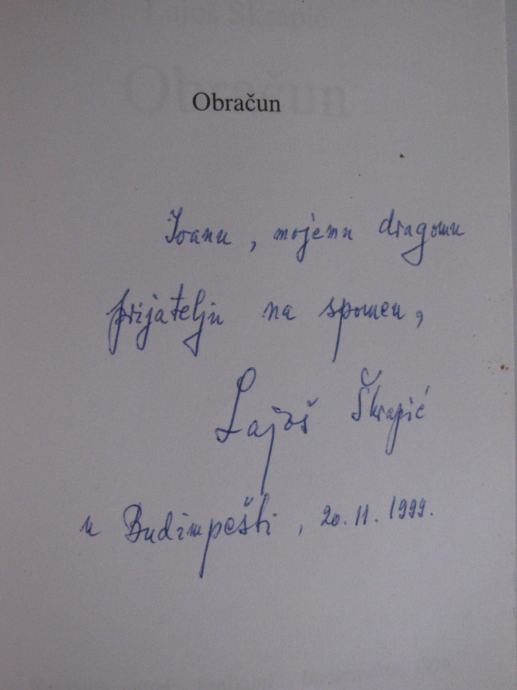 Obračun
Ivanu, mojemu dragomu
prijatelju na spomen,
Lajoš Škrapić
u Budimpešti, 20. 11. 1999.